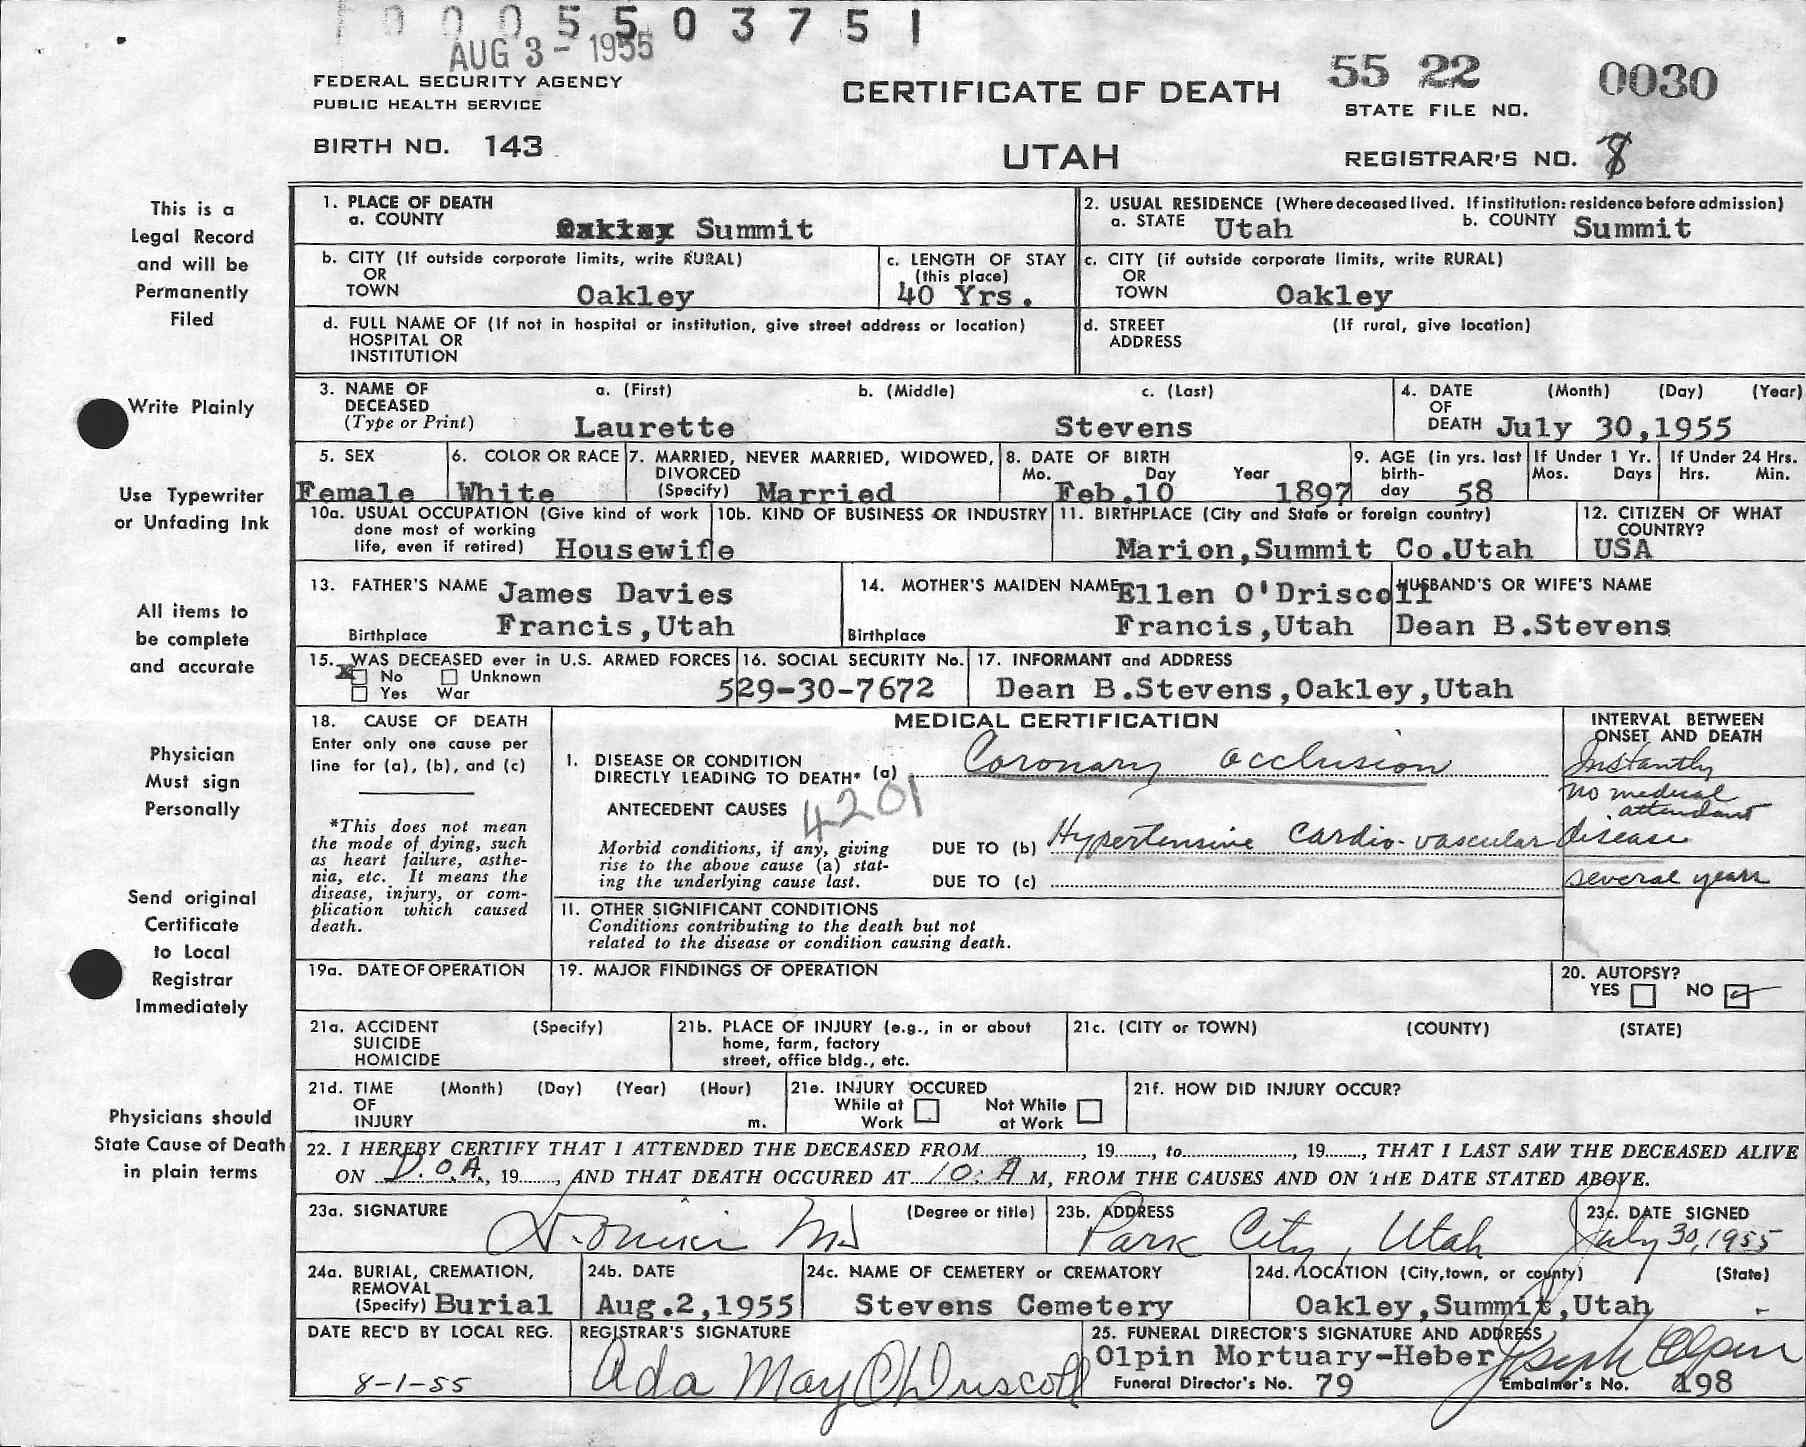 0005503751
AUG 3 - 1955
FEDERAL SECURITY AGENCY
PUBLIC HEALTH SERVICE
BIRTH NO. 143
CERTIFICATE OF DEATH
UTAH
55 22 0030
STATE FILE NO.
REGISTRAR'S NO. 8
This is a
Legal Record
and will be
Permanently
Filed
Write Plainly
Use Typewriter
or Unfading Ink
All items to
be complete
and accurate
Physician
Must sign
Personally
Send original
Certificate
to Local
Registrar
Immediately
Physicians should
State Cause of Death
in plain terms
1. PLACE OF DEATH
a. COUNTY Summit
2. USUAL RESIDENCE (Where deceased lived. If institution: residence before admission)
a. STATE Utah b. COUNTY Summit
b. CITY (If outside corporate limits, write RURAL)
OR
TOWN Oakley
c. LENGTH OF STAY
(this place)
40 Yrs.
c. CITY (if outside corporate limits, write RURAL)
OR
TOWN Oakley
d. FULL NAME OF (If not in hospital or institution, give street address or location)
HOSPITAL OR
INSTITUTION
d. STREET (If rural, give location)
ADDRESS
3. NAME OF a. (First) b. (Middle) c. (Last)
DECEASED
(Type or Print) Laurette Stevens
4. DATE (Month) (Day) (Year)
OF
DEATH July 30,1955
5. SEX
Female
6. COLOR OR RACE
White
7. MARRIED, NEVER MARRIED, WIDOWED,
DIVORCED
(Specify) Married
8. DATE OF BIRTH
Mo. Day Year
Feb.10 1897
9. AGE (in yrs. last
birth-
day 58
If Under 1 Yr.
Mos. Days
If Under 24 Hrs.
Hrs. Min.
10a. USUAL OCCUPATION (Give kind of work
done most of working
life, even if retired) Housewife
10b. KIND OF BUSINESS OR INDUSTRY
11. BIRTHPLACE (City and State or foreign country)
Marion,Summit Co.Utah
12. CITIZEN OF WHAT
COUNTRY?
USA
13. FATHER'S NAME James Davies
Birthplace Francis,Utah
14. MOTHER'S MAIDEN NAME Ellen O'Driscoll
Birthplace Francis,Utah
HUSBAND'S OR WIFE'S NAME
Dean B.Stevens
15. WAS DECEASED ever in U.S. ARMED FORCES
x No Unknown
Yes War
16. SOCIAL SECURITY No.
529-30-7672
17. INFORMANT and ADDRESS
Dean B.Stevens,Oakley,Utah
18. CAUSE OF DEATH
Enter only one cause per
line for (a), (b), and (c)
*This does not mean
the mode of dying, such
as heart failure, asthe-
nia, etc. It means the
disease, injury, or com-
plication which caused
death.
MEDICAL CERTIFICATION
I. DISEASE OR CONDITION
DIRECTLY LEADING TO DEATH* (a) Coronary occlusion
ANTECEDENT CAUSES 4201
Morbid conditions, if any, giving
rise to the above cause (a) stat-
ing the underlying cause last.
DUE TO (b) Hypertensive Cardio-vascular disease
DUE TO (c)
INTERVAL BETWEEN
ONSET AND DEATH
Instantly
no medical
attendant
several years
II. OTHER SIGNIFICANT CONDITIONS
Conditions contributing to the death but not
related to the disease or condition causing death.
19a. DATE OF OPERATION
19. MAJOR FINDINGS OF OPERATION
20. AUTOPSY?
YES NO ✓
21a. ACCIDENT (Specify)
SUICIDE
HOMICIDE
21b. PLACE OF INJURY (e.g., in or about
home, farm, factory
street, office bldg., etc.
21c. (CITY or TOWN) (COUNTY) (STATE)
21d. TIME (Month) (Day) (Year) (Hour)
OF
INJURY m.
21e. INJURY OCCURED
While at Work Not While at Work
21f. HOW DID INJURY OCCUR?
22. I HEREBY CERTIFY THAT I ATTENDED THE DECEASED FROM............, 19......, to............, 19......, THAT I LAST SAW THE DECEASED ALIVE
ON D.O.A., 19......, AND THAT DEATH OCCURED AT 10: A M, FROM THE CAUSES AND ON THE DATE STATED ABOVE.
23a. SIGNATURE (Degree or title)
MD
23b. ADDRESS
Park City, Utah
23c. DATE SIGNED
July 30, 1955
24a. BURIAL, CREMATION,
REMOVAL
(Specify) Burial
24b. DATE
Aug.2,1955
24c. NAME OF CEMETERY or CREMATORY
Stevens Cemetery
24d. LOCATION (City, town, or county) (State)
Oakley,Summit,Utah
DATE REC'D BY LOCAL REG.
8-1-55
REGISTRAR'S SIGNATURE
Ada May O'Driscoll
25. FUNERAL DIRECTOR'S SIGNATURE AND ADDRESS
Olpin Mortuary-Heber Joseph Olpin
Funeral Director's No. 79 Embalmer's No. 198